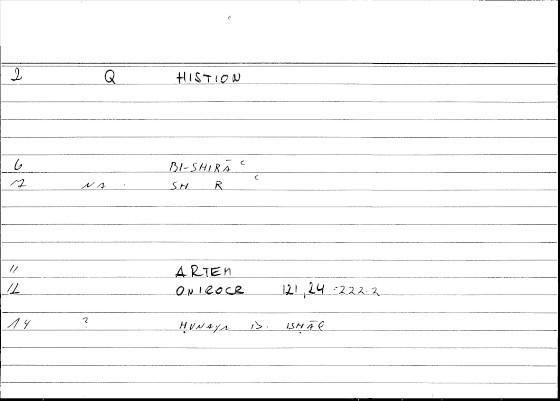 2 Q HISTION
6 BI-SHIRĀʿ
12 NA. SH R ʿ
11 ARTEM
12 ONIROCR 121,24 =222.2
14 ? ḤUNAYN B. ISḤĀQ